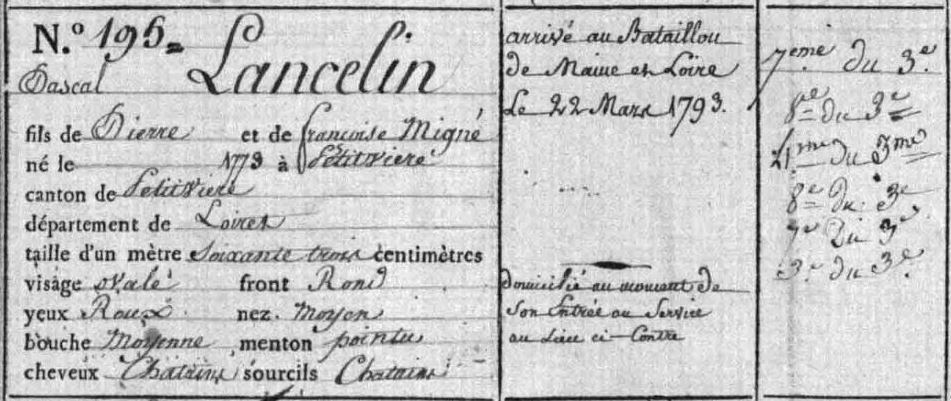 N.º 195= Lancelin
Pascal
fils de Pierre et de francoise Migné
né le 1773 à Petitviere
canton de Petitviere
département de Loiret
taille d'un mètre soixante trois centimètres
visage ovale front Rond
yeux Roux nez. Moyen
bouche Moyenne menton pointu
cheveux Chatains sourcils Chatains
arrivé au Bataillou
de Maine et Loire
Le 22 Mars 1793.
domicilié au moment de
son Entrée au Service
au Lieu ci-Contre
7eme du 3.e
8e du 3e
du 3me
8e du 3e
7e Du 3e
3e du 3e